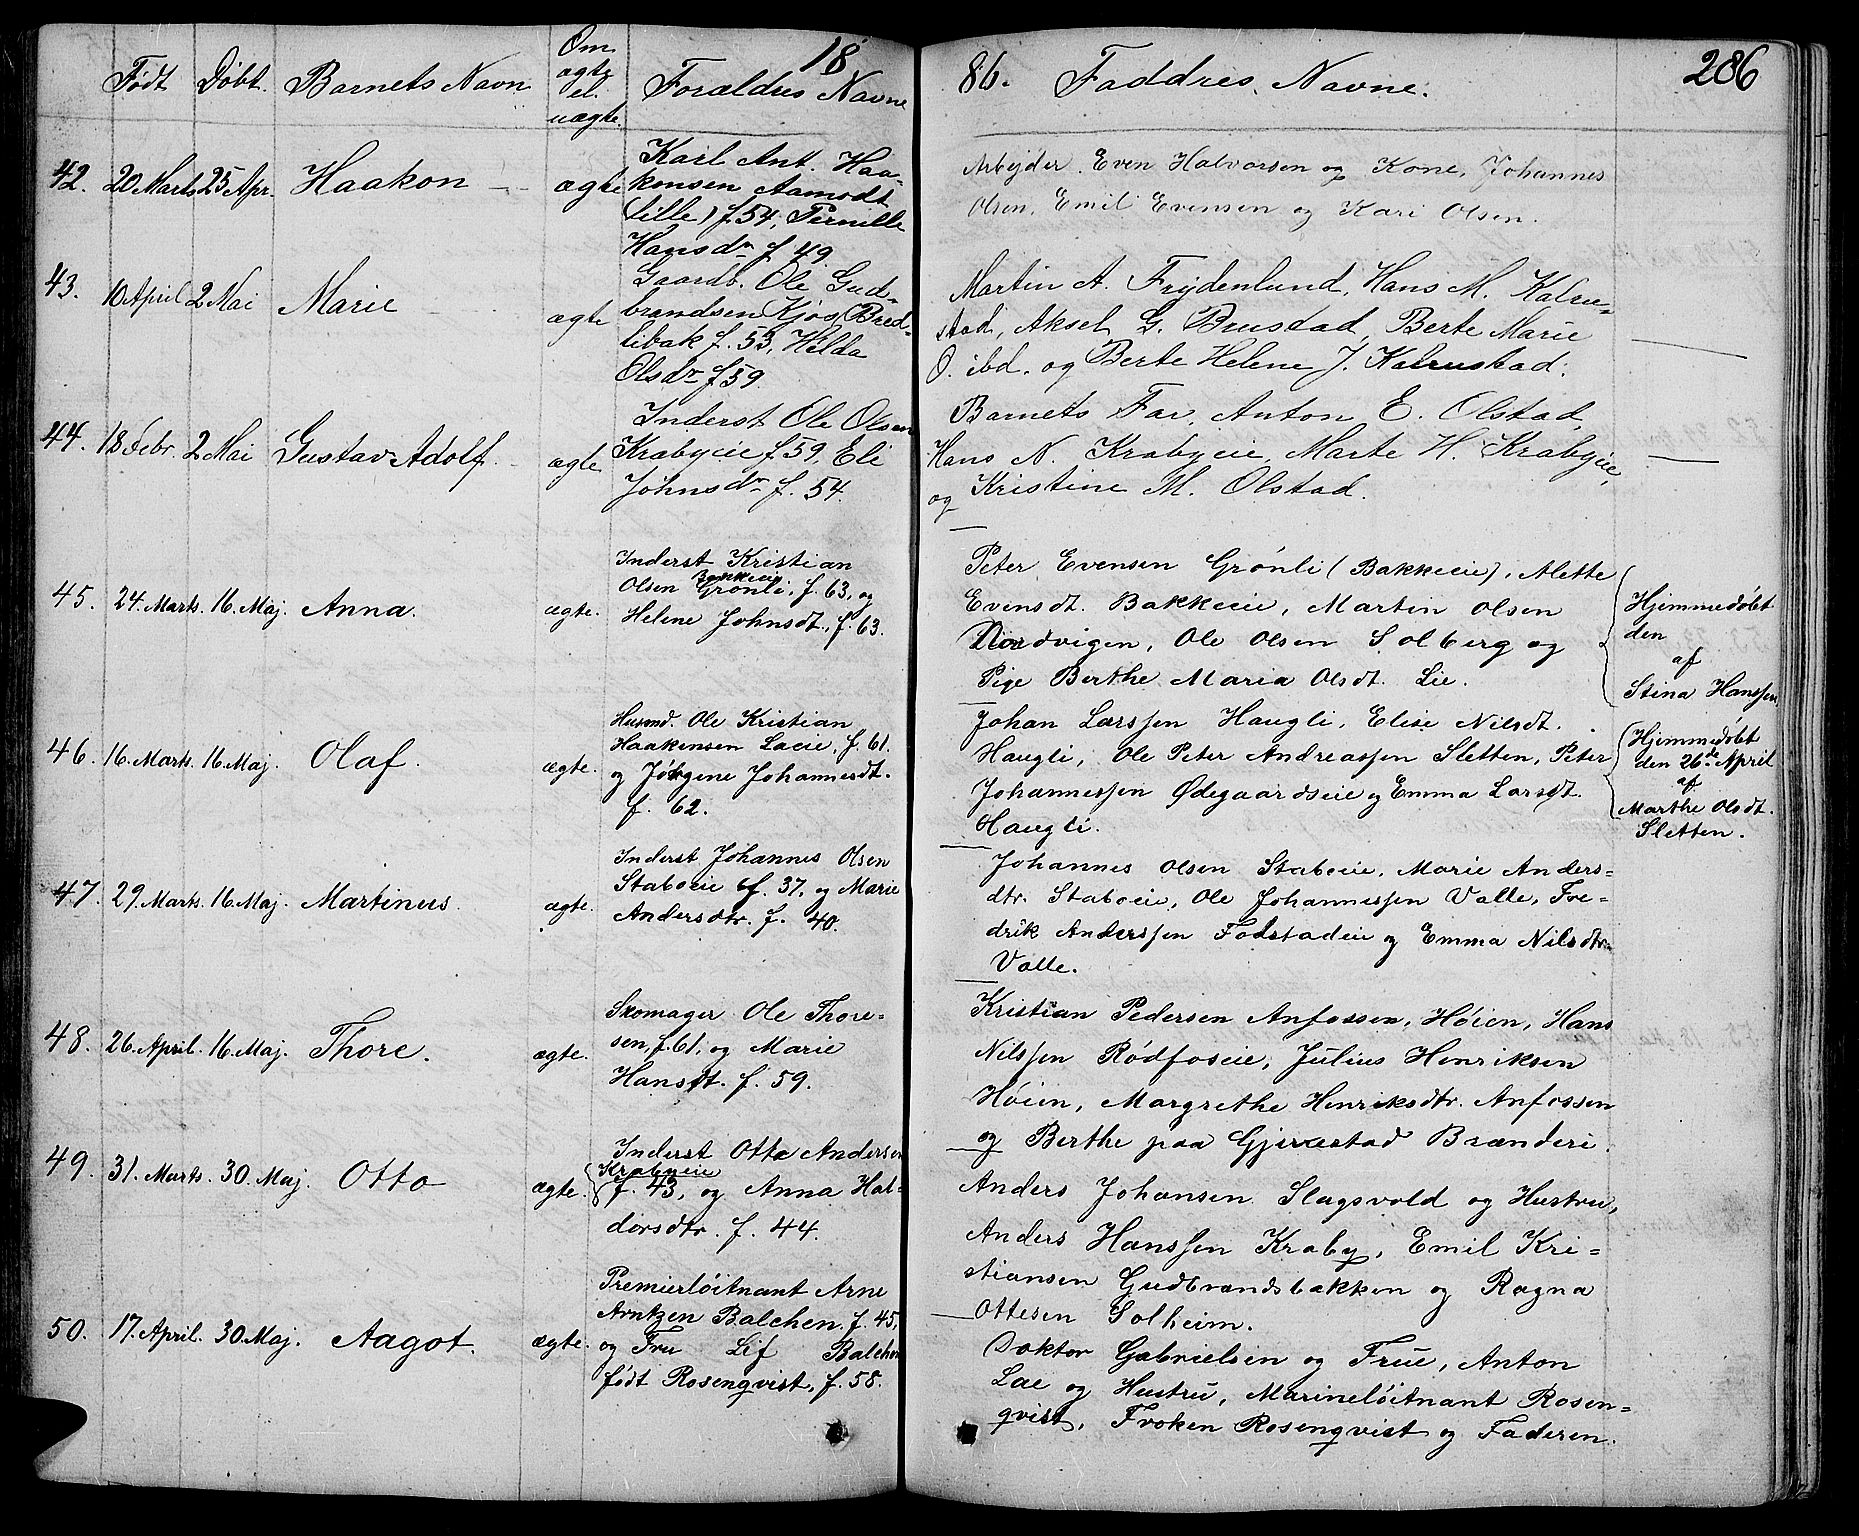 1886. 286
Født Døbt. Barnets Navn Om ægte el. uægte. Forældres Navne Faddres Navne.
42. 20 Marts 25 Apr. Haakon ægte
Karl Ant. Haa-
konsen Aamodt
(lille) f. 54, Pernille
Hansdr f. 49.
Arbejder Even Halvorsen og Kone, Johannes
Olsen, Emil Evensen og Kari Olsen.
43. 10 April 2 Mai Marie ægte
Gaardb. Ole Gud-
brandsen Kjøs, Bred-
libak f. 53, Hilda
Olsdr f 59.
Martin A. Frydenlund, Hans M. Kalru-
stad, Aksel G. Brustad, Berte Marie
O. ibd. og Berte Helene J. Kalrustad.
44. 18 Febr. 2 Mai Gustav Adolf. ægte
Inderst Ole Olsen
Krabyeie f. 59, Eli
Johnsdr f. 54.
Barnets Far, Anton E. Olstad,
Hans N. Krabyeie, Marte H. Krabyeie,
og Kristine M. Olstad.
45. 24. Marts. 16. Maj. Anna. ægte.
Inderst Kristian
Bakkeeie
Olsen Grønli, f. 63, og
Helene Johnsdt., f. 63.
Peter Evensen Grønli (Bakkeeie), Alette
Evensdt. Bakkeeie, Martin Olsen
Nordvigen, Ole Olsen Solberg og
Pige Berthe Maria Olsdt. Lie.
Hjemmedøbt
den
af
Stina Hanssen
46. 16. Marts. 16. Maj. Olaf. ægte.
Husmd. Ole Kristian
Haakensen Laeie, f. 61.
og Jørgine Johannesdt.
f. 62.
Johan Larssen Haugli, Elise Nilsdt.
Haugli, Ole Peter Andreassen Sletten, Peter
Johannessen Ødegaardseie og Emma Larsdt.
Haugli.
Hjemmedøbt
den 26de April
af
Marthe Olsdt.
Sletten.
47. 29. Marts. 16. Maj. Martinus. ægte.
Inderst Johannes Olsen
Staboeie f. 37, og Marie
Andersdtr. f. 40.
Johannes Olsen Staboeie, Marie Anders-
dtr. Staboeie, Ole Johannessen Valle, Fre-
drik Anderssen Fodstadeie og Emma Nilsdtr.
Valle.
48. 26. April. 16. Maj. Thore. ægte.
Skomager Ole Thore-
sen, f. 61, og Marie
Hansdt. f. 59.
Kristian Pedersen Anfossen, Høien, Hans
Nilssen Rødfoseie, Julius Henriksen
Høien, Margrethe Henriksdtr. Anfossen
og Berthe paa Gjivestad Brænderi.
49. 31. Marts. 30. Maj. Otto ægte.
Inderst Otto Andersen
Krabyeie
f. 43, og Anna Hal-
dorsdtr. f. 44.
Anders Johansen Slagsvold og Hustru,
Anders Hanssen Kraby, Emil Kri-
stiansen Gudbrandsbakken og Ragna
Ottesen Solheim.
50. 17. April. 30. Maj. Aagot. ægte.
Premierløitnant Arne
Arntzen Balchen. f. 45,
og Fru Lif Balchen
født Rosenqvist, f. 58.
Doktor Gabrielsen og Frue, Anton
Lae og Hustru, Marineløitnant Rosen-
qvist, Frøken Rosenqvist og Faderen.